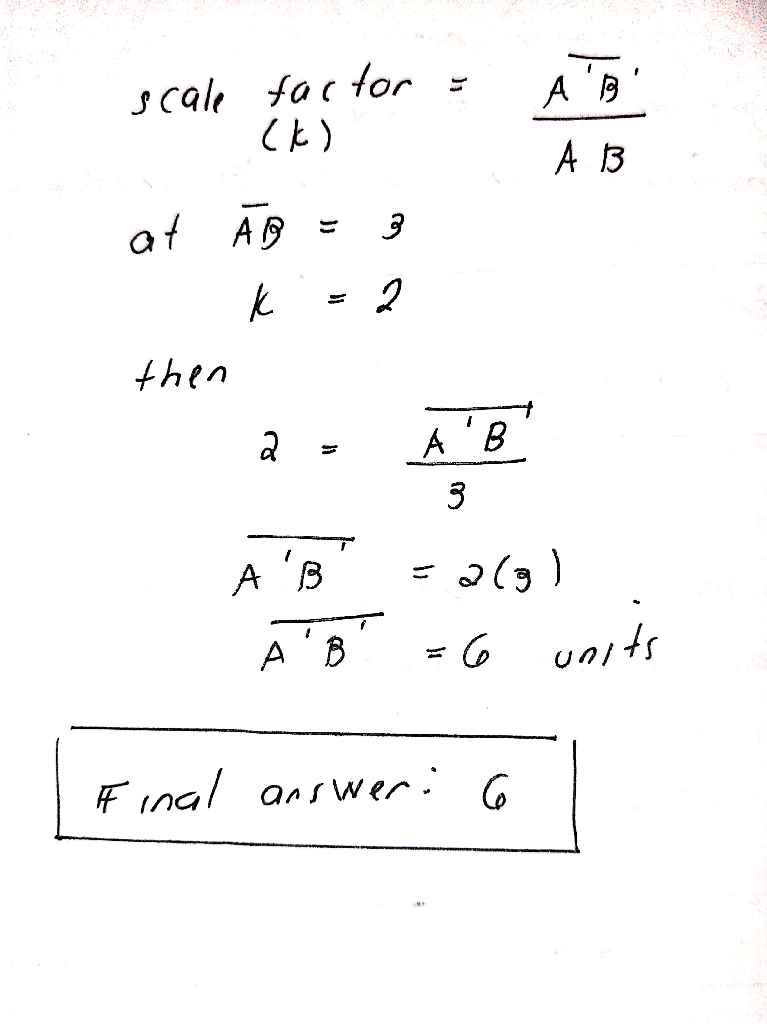 scale factor = A'B'
(k) AB
at AB = 3
k = 2
then
2 = A'B'
3
A'B' = 2(3)
A'B' = 6 units
Final answer: 6